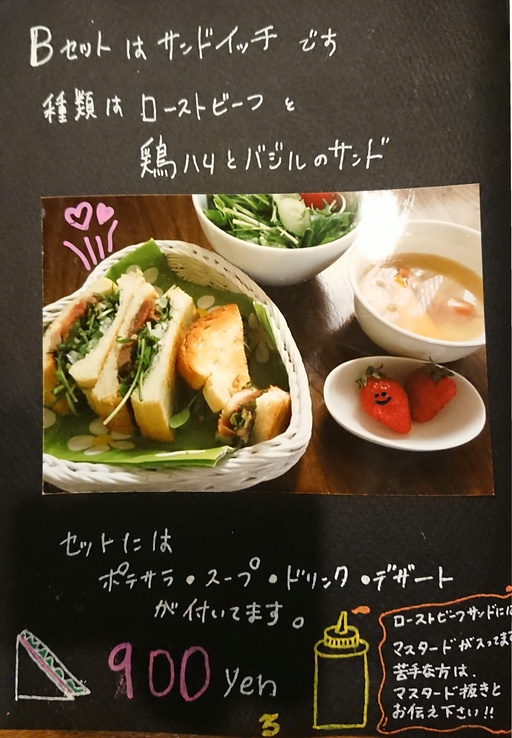 Bセットはサンドイッチです
種類はローストビーフと
鶏ハムとバジルのサンド
セットには
ポテサラ・スープ・ドリンク・デザート
が付いてます。
900 yen
ローストビーフサンドには
マスタードが入ってます
苦手な方は、
マスタード抜きと
お伝え下さい!!
3